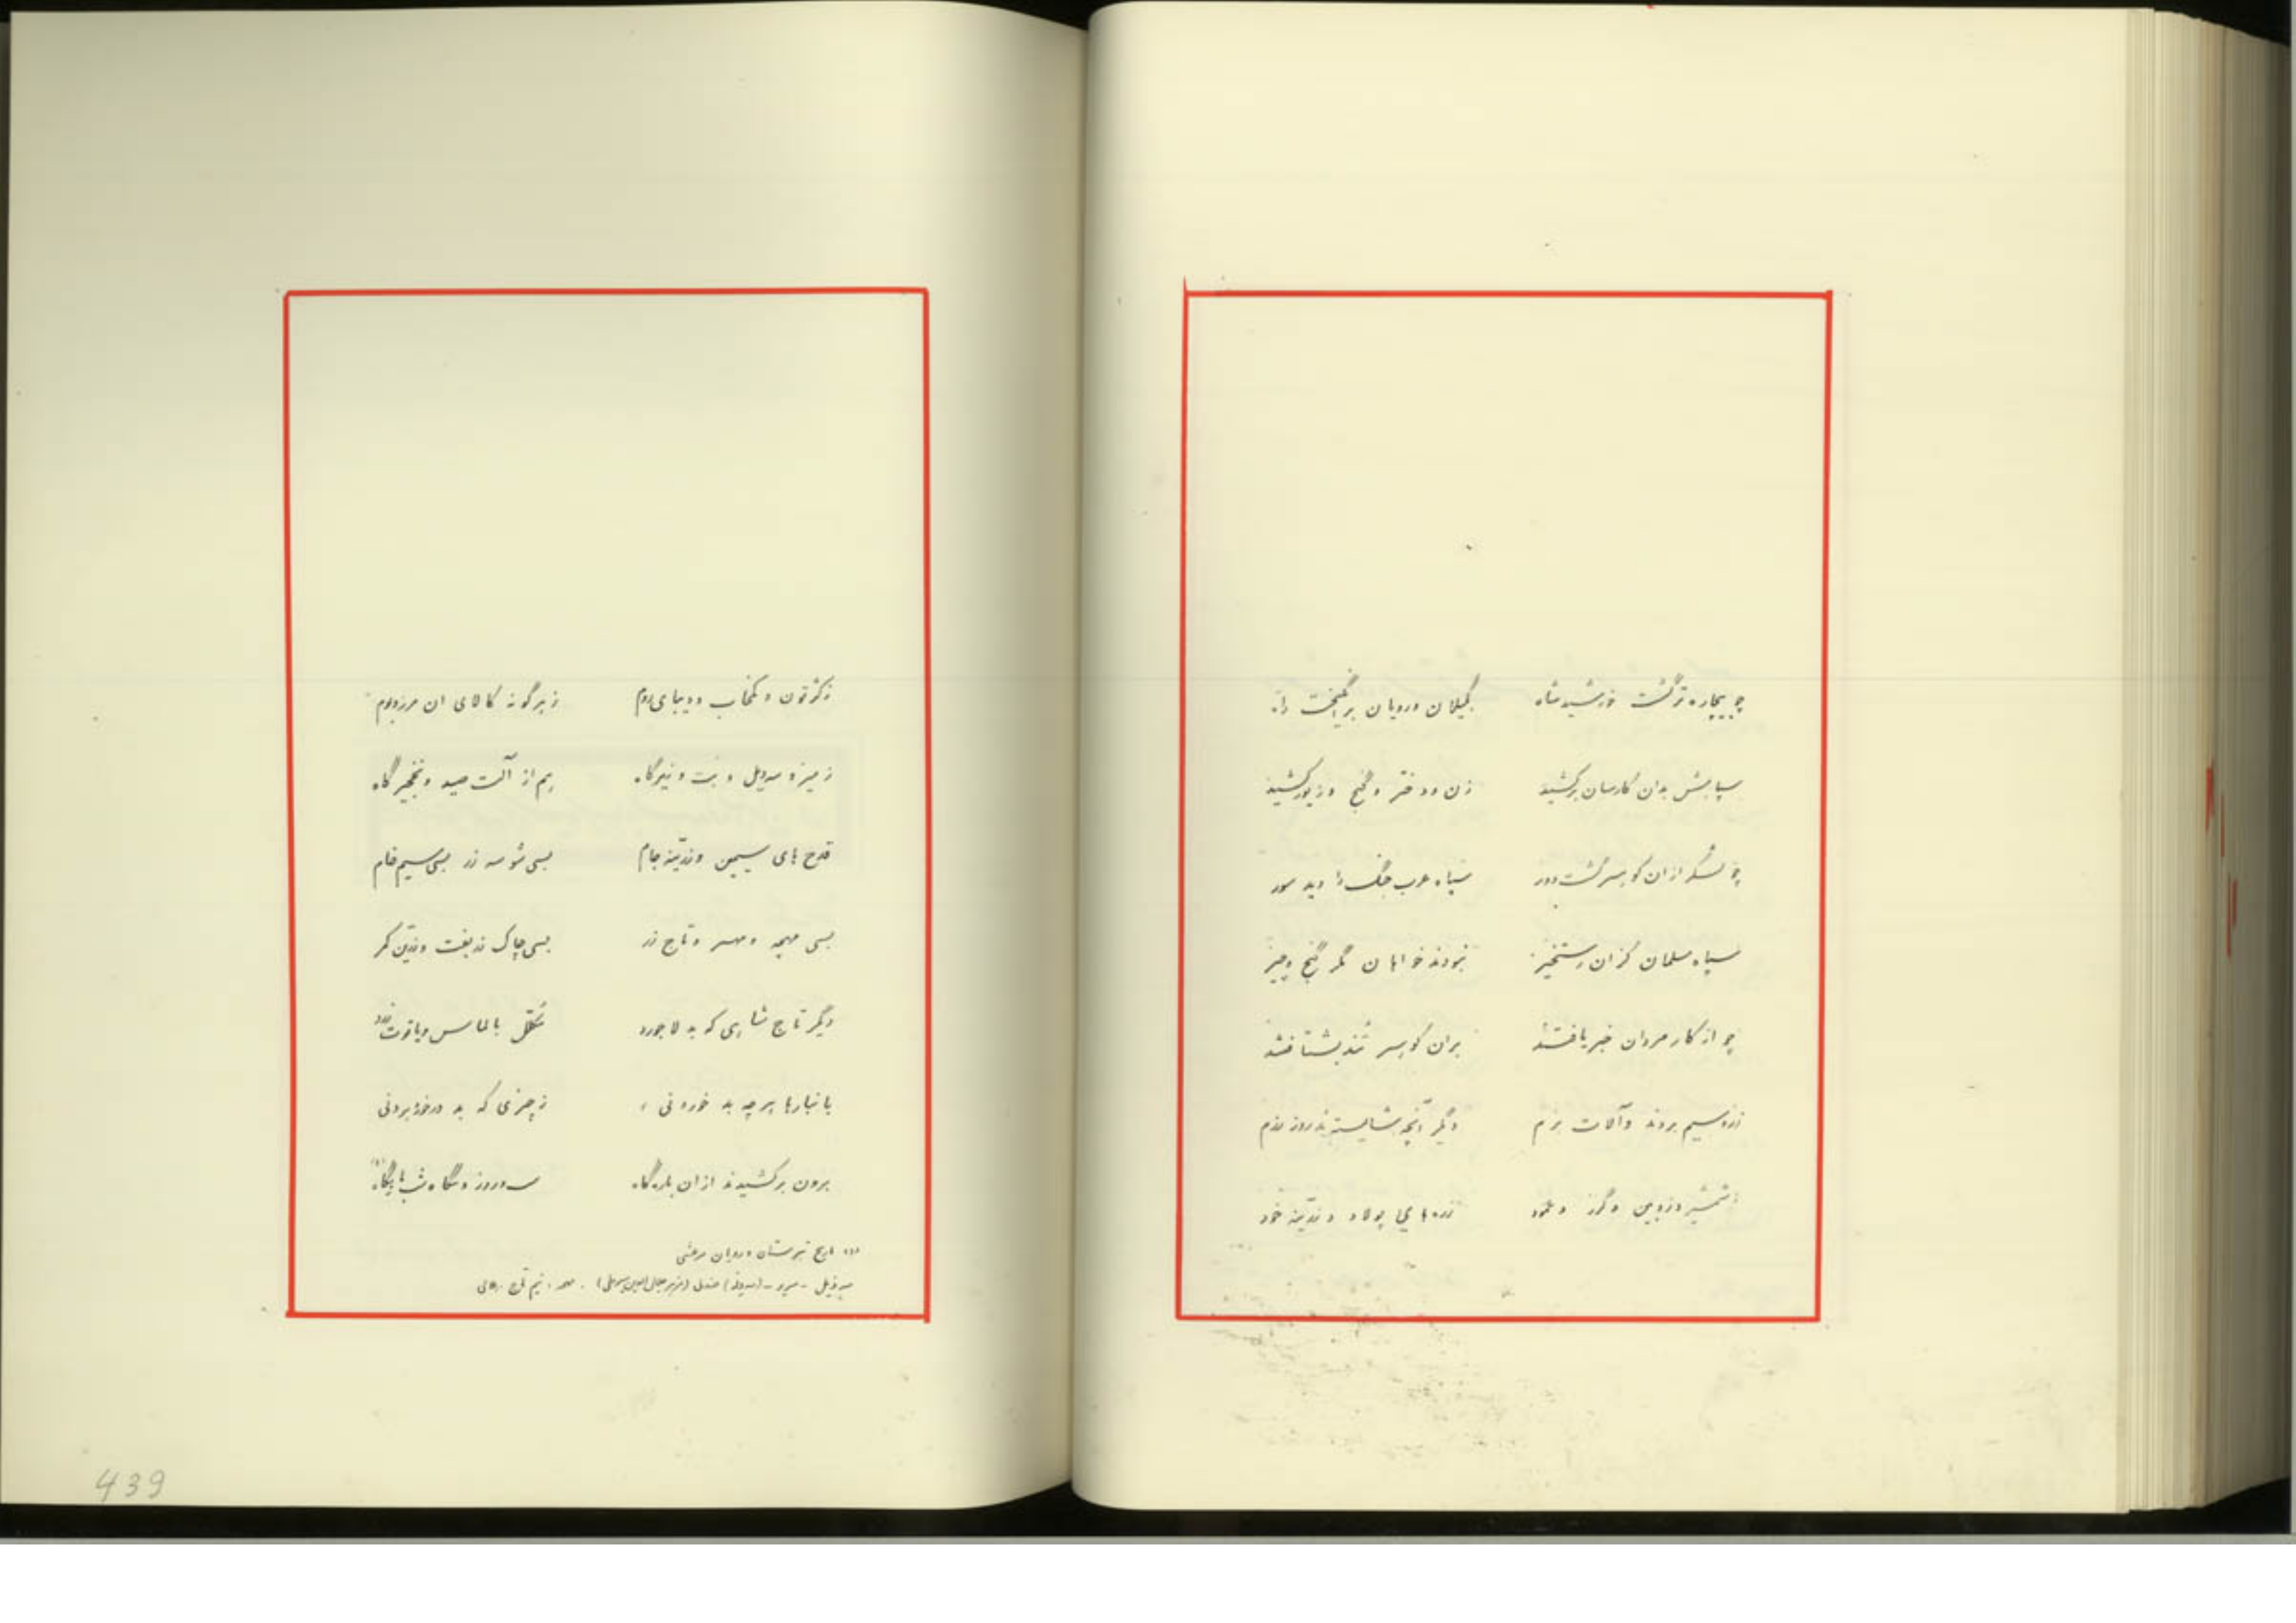 چو بیچاره تر گشت خورشید شاه   بگیلان و رویان برانگیخت راه
سپاهش بدان کارسان برکشید   زن و دختر و گنج و زیور کشید
چو لشکر از ان کوهسر گشت دور   سپاه عرب جنگ را دید سور
سپاه مسلمان کزان رستخیز   نبودند خواهان مگر گنج و چیز
چو از کار مردان خبر یافتند   بران کوهسر تند بشتافتند
زر و سیم بردند و آلات بزم   دگر آنچه شایسته بد روز رزم
ز شمشیر و زوبین و گرز و عمود   زره های پولاد و زرّینه خود
و کمخاب و دیبای روم   ز هر گونه کالای ان مرز و بوم
ز میز و و نیزگاه   هم از آلت صید و نخجیر گاه
قدح های سیمین و زرّینه جام   بسی شوسه زر بسی سیم خام
بسی مهچه و و تاج زر   بسی چاک زربفت و زرّین کمر
دگر تاج شاهی که بد لاجورد   مکلّل بالماس و یاقوت زرد
بانبارها هر چه بد خوردنی   ز چیزی که بد در خور بردنی
برون برکشیدند از ان بارگاه
تاریخ تبرستان و رویان مرعشی
439